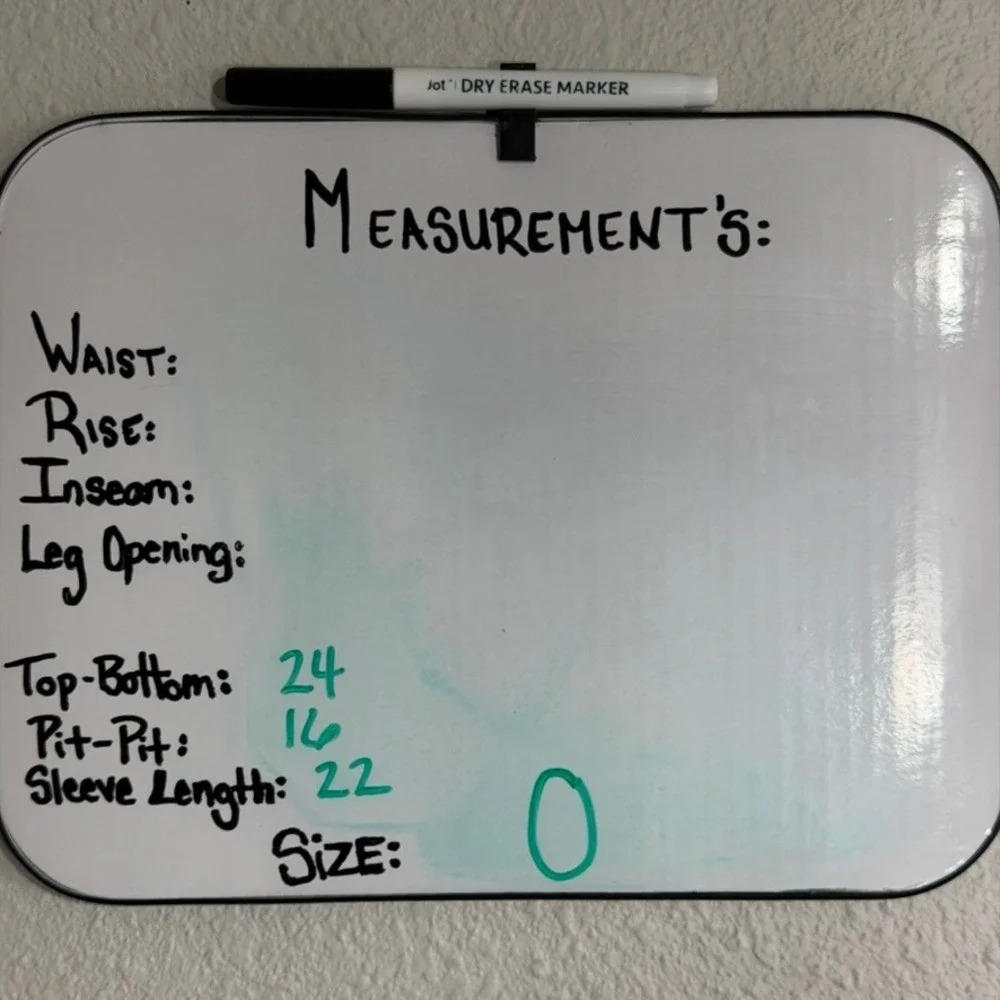 Jot™ DRY ERASE MARKER
MEASUREMENT'S:
WAIST:
RISE:
Inseam:
Leg Opening:
Top-Bottom: 24
Pit-Pit: 16
Sleeve Length: 22
SiZE: 0